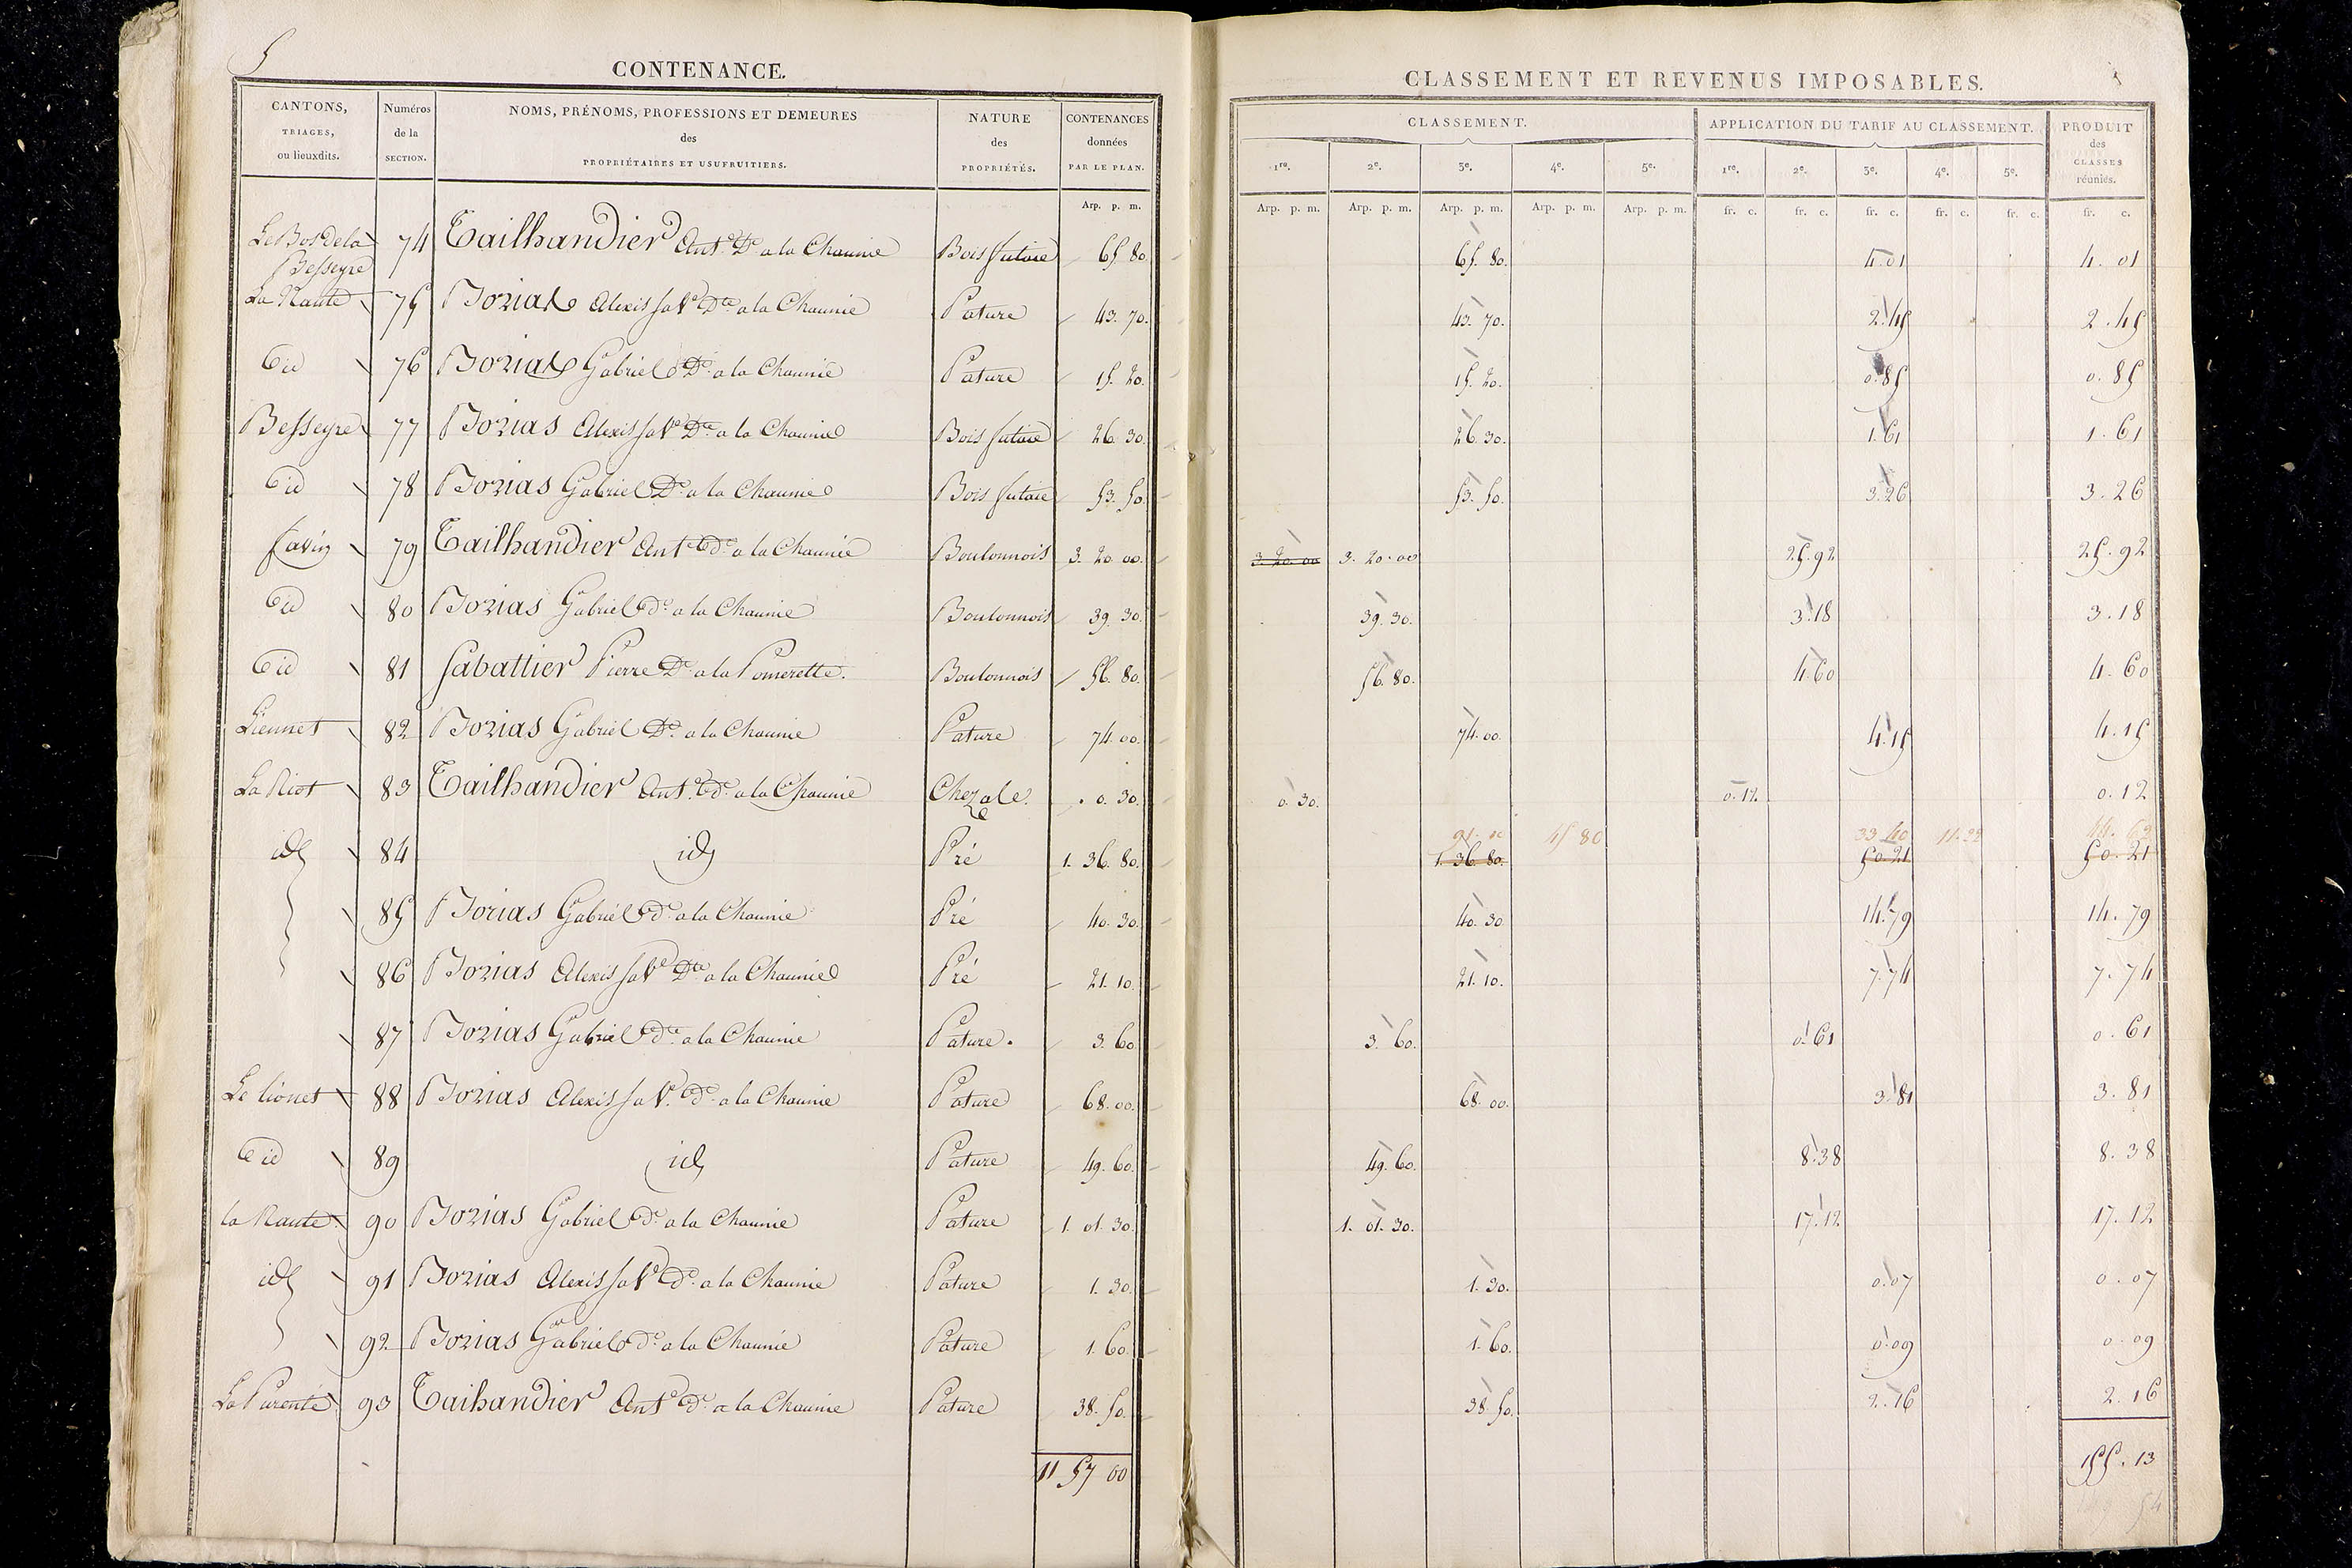 5
CONTENANCE.
CANTONS, TRIAGES, ou lieuxdits.
Numéros de la SECTION.
NOMS, PRÉNOMS, PROFESSIONS ET DEMEURES des PROPRIÉTAIRES ET USUFRUITIERS.
NATURE des PROPRIÉTÉS.
CONTENANCES données PAR LE PLAN.
Arp. p. m.
Le Bos de la Besseyre 74 Tailhandier Ant.e De a la Chaumie Bois futaie 65 80.
La Naute 75 Borias Alexis sa Ve Dte a la Chaumie Pature 43. 70.
id 76 Borias Gabriel De a la Chaumie Pature 15. 20.
Besseyre 77 Borias Alexis sa Ve Dte a la Chaumie Bois futaie 26. 30.
id 78 Borias Gabriel De a la Chaumie Bois futaie 53. 50.
favin 79 Tailhandier Ant.e de a la Chaumie Boulonnois 3. 20. 00.
id 80 Borias Gabriel de a la Chaumie Boulonnois 39. 30.
id 81 Sabattier Pierre De a la Pomerette. Boulonnois 56. 80.
Liennet 82 Borias Gabriel De a la Chaumie Pature 74. 00.
La Riot 83 Tailhandier Ant.e de a la Chaumie Chezale. 0. 30.
id 84 id Pré 1. 36. 80.
85 Borias Gabriel de a la Chaumie Pré 40. 30.
86 Borias Alexis sa Ve Dte a la Chaumie Pré 21. 10.
87 Borias Gabriel de a la Chaumie Pature. 3. 60
Le lionet 88 Borias Alexis sa Ve de a la Chaumie Pature 68. 00.
id 89 id Pature 49. 60.
la Naute 90 Borias Gabriel de a la Chaumie Pature 1. 01. 30.
id 91 Borias Alexis sa Ve de a la Chaumie Pature 1. 30.
92 Borias Gabriel de a la Chaumie Pature 1. 60.
La Parente 93 Taihandier Ant.e de a la Chaumie Pature 38. 50.
11 57 00
CLASSEMENT ET REVENUS IMPOSABLES.
CLASSEMENT.
APPLICATION DU TARIF AU CLASSEMENT.
PRODUIT des CLASSES réunies.
1re. 2e. 3e. 4e. 5e. 1re. 2e. 3e. 4e. 5e.
Arp. p. m. Arp. p. m. Arp. p. m. Arp. p. m. Arp. p. m. fr. c. fr. c. fr. c. fr. c. fr. c. fr. c.
65. 80. 4.01 4. 01
43. 70. 2.45 2. 45
15. 20. 0.85 0. 85
26. 30. 1.61 1. 61
53. 50. 3.26 3. 26
3. 20. 00 3. 20. 00 25.92 25. 92
39. 30. 3.18 3. 18
56. 80. 4.60 4. 60
74. 00. 4.15 4. 15
0. 30. 0.12 0. 12
91. 00 45 80 33 40
1. 36. 80. 50.21 50. 21
40. 30 14.79 14. 79
21. 10. 7.74 7. 74
3. 60. 0.61 0. 61
68. 00. 3.81 3. 81
49. 60. 8.38 8. 38
1. 01. 30. 17.12 17. 12
1. 30. 0.07 0. 07
1. 60. 0.09 0. 09
38. 50. 2.16 2. 16
155. 13